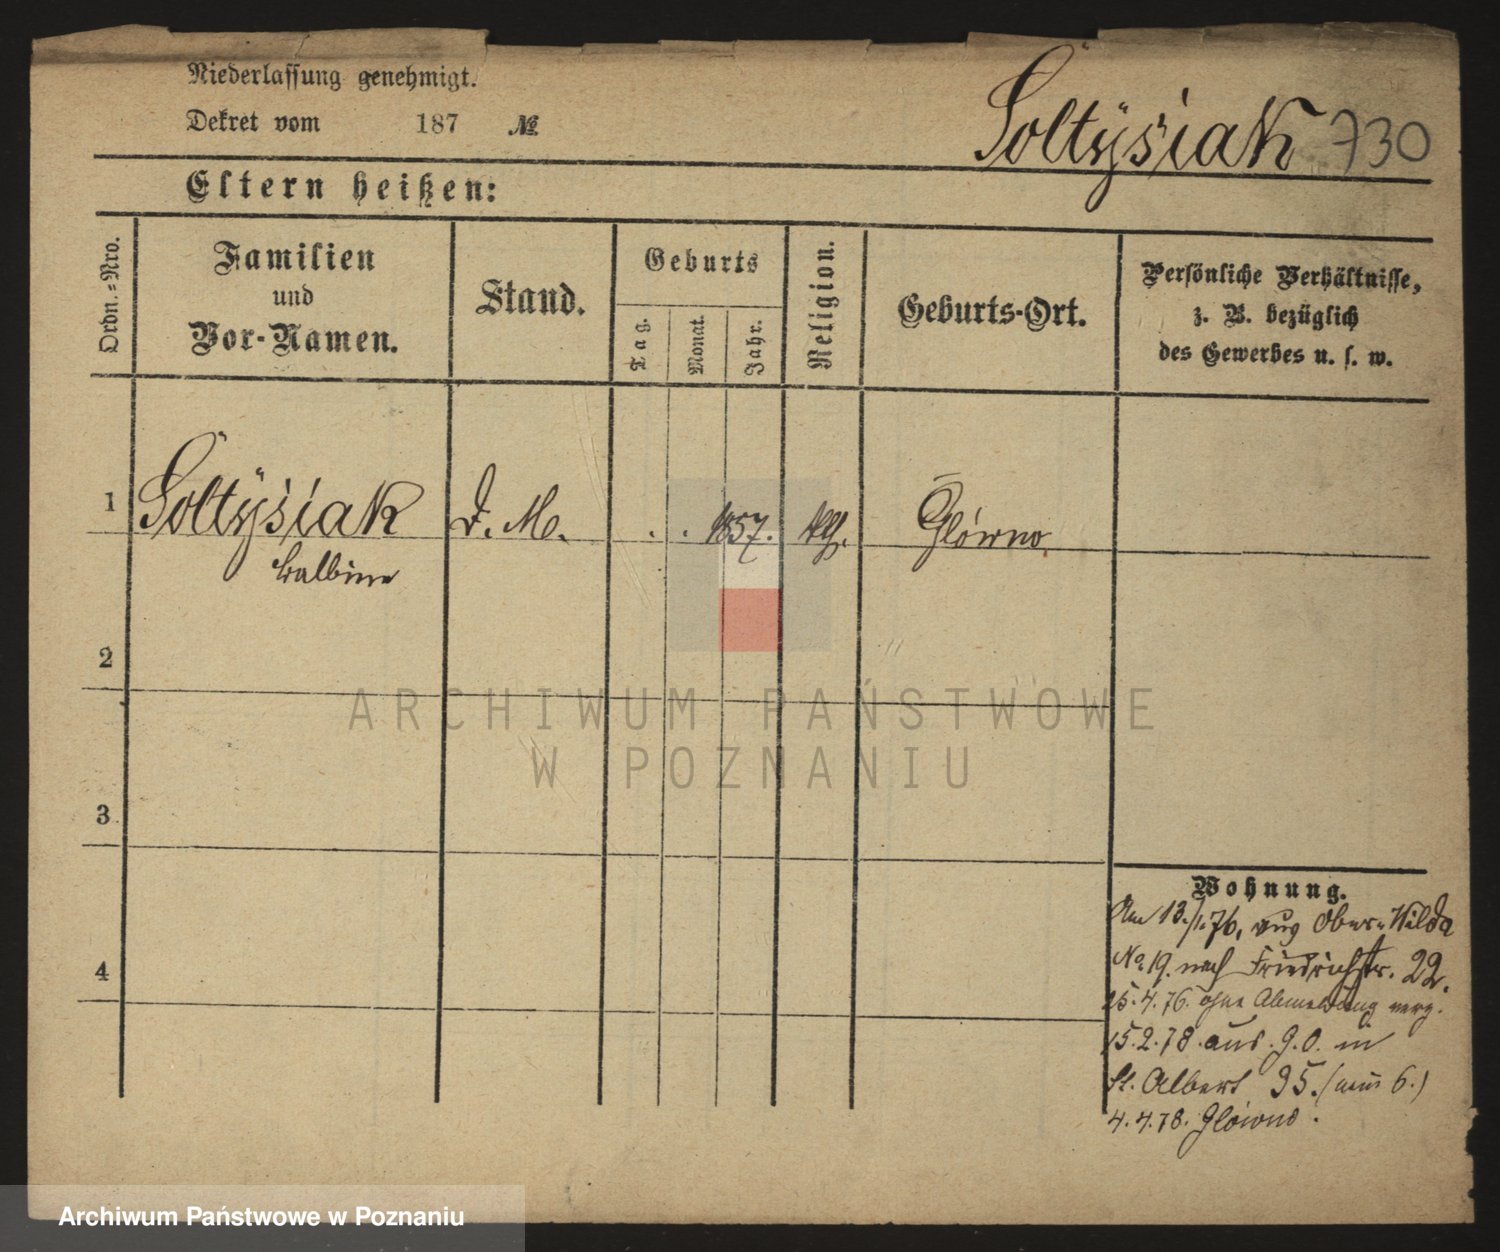 Niederlassung genehmigt.
Dekret vom 187 №
Soltÿsiak 730
Eltern heißen:
Ordn.=Nro.
Familien
und
Vor-Namen.
Stand.
Geburts
Tag.
Monat.
Jahr.
Religion.
Geburts-Ort.
Persönliche Verhältnisse,
z. B. bezüglich
des Gewerbes u. s. w.
1 Soltÿsiak D. M. . . 1857. kth. Glówno
Balbine
2
3
4
Wohnung.
Am 13./1.76, aus Ober-Wilda
No. 19. nach Friedrichstr. 22.
25.4.76. ohne Abmeldung verz.
15.2.78. aus. G.O. in
St. Albert 35. (neu 6.)
4.4.78. Glówno.
ARCHIWUM PAŃSTWOWE
W POZNANIU
Archiwum Państwowe w Poznaniu